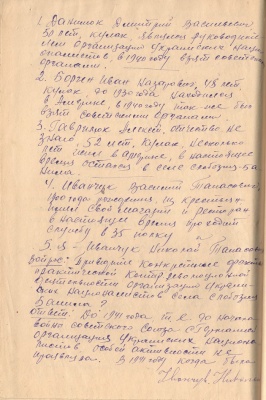 1. Данилюк Дмитрий Васильевич
50 лет, кулак, являлся руководите
лем организации Украинских Нацио
налистов в 1940 году взят советскими
органами.
2. Борсен Иван Назарович, 48 лет,
Кулак, до 1930 года находился
в Америке, в 1940 году так же был
взят советскими органами.
3. Гаврилюк Алексей, отчество не
знаю, 52 лет, Кулак, несколько
лет жил в Америке, в настоящее
время остался в селе слобозия-Ба
4. Иванчук Василий Танасович
года рождения, из крестьян
имел свой магазин и ресторан
в настоящее время проходит
службу в 35 полку
5. Я - Иванчук Николай Танасов
Вопрос: Приведите конкретные факты
практической контрреволюционной
деятельности организации Украин
ских Националистов села Слобозия
Ответ: До 1941 года т.е. до начала
войны советского Союза с Германией
организация Украинских Национа
листов особой активности не
проявляла. В 1941 году когда была
Иванчук Николай